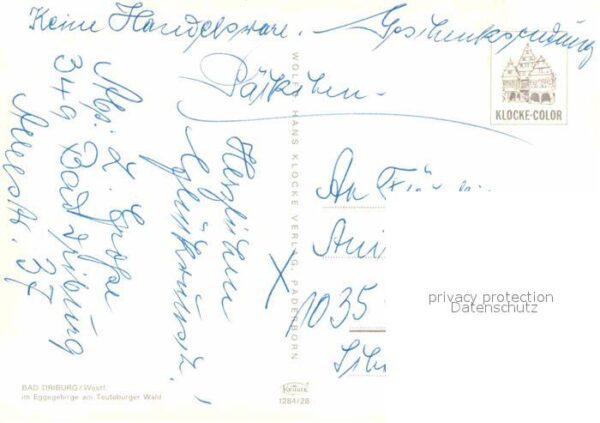 Keine Handelsware. Geschenksendung
Päckchen
KLOCKE-COLOR
Abs. L. Große
349 Bad Driburg
Allestr. 37
Herzlichen
Glückwunsch!
WOLF HANS KLOCKE VERLAG PADERBORN
An Frau
1035
privacy protection
Datenschutz
BAD DRIBURG/Westf.
im Eggegebirge am Teutoburger Wald
1284/28